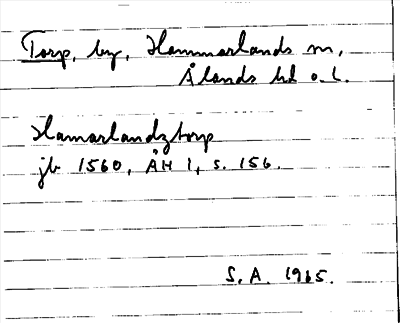 Torp, by, Hammarlands sn,
Ålands hd o. l.
Hamarlandztorp
jb 1560, ÅH 1, s. 156.
S. A. 1965.